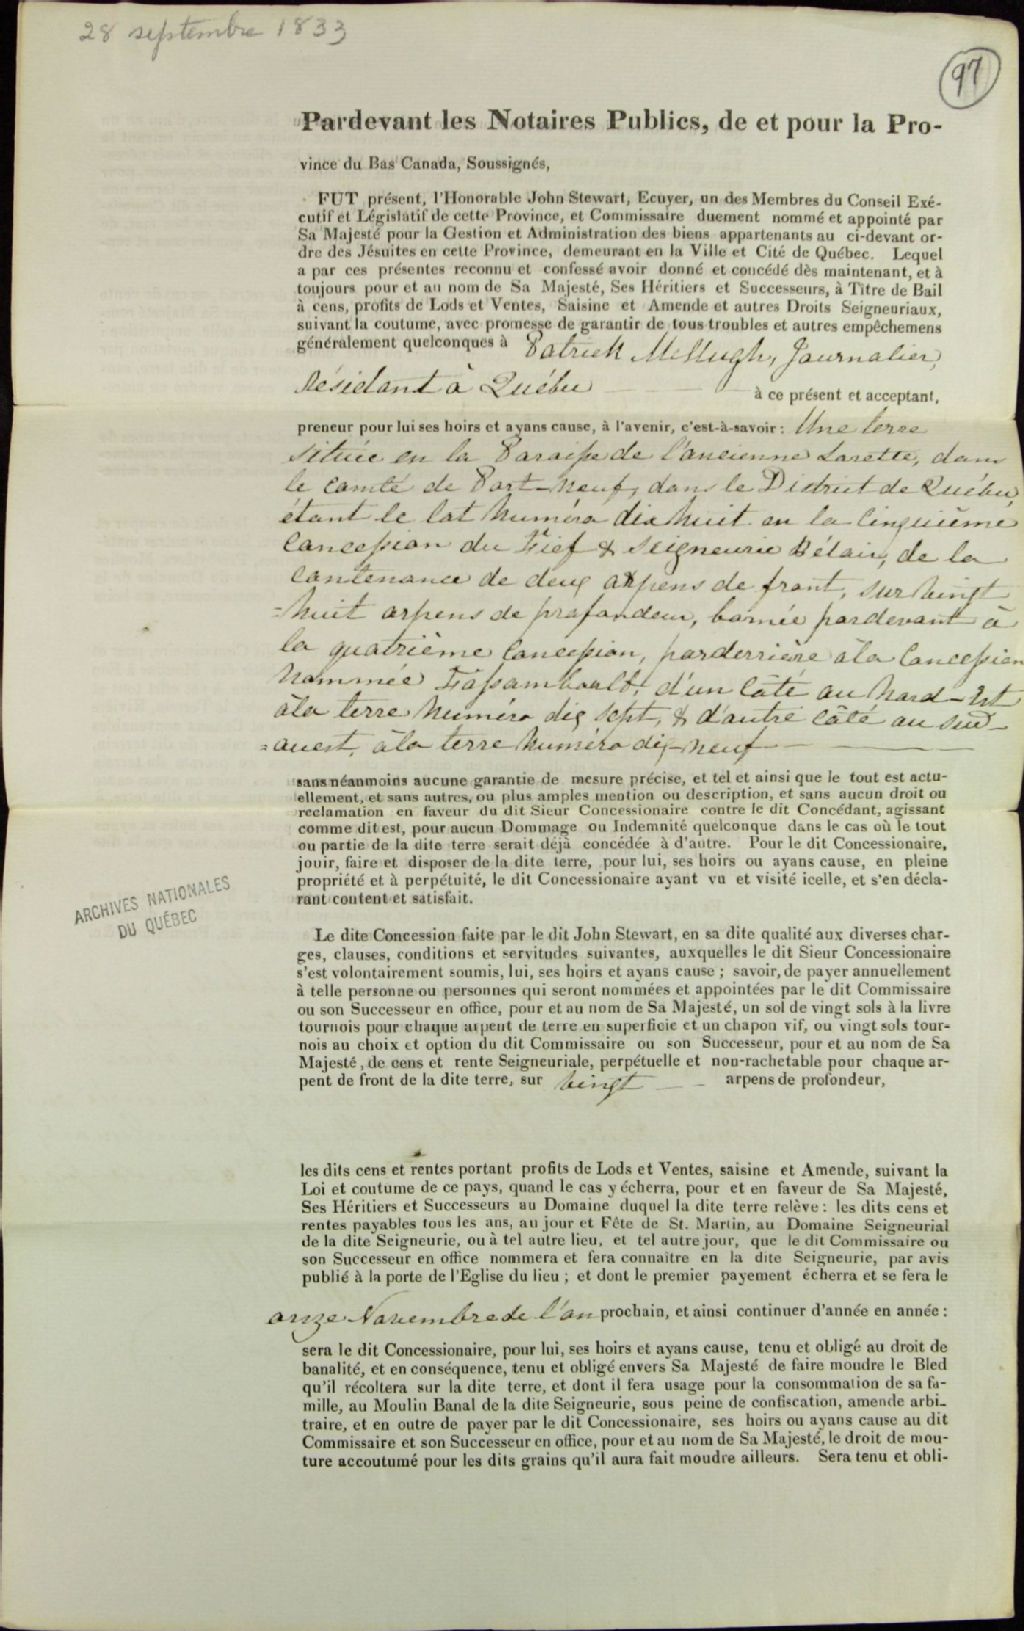 28 septembre 1833
97
Pardevant les Notaires Publics, de et pour la Pro-
vince du Bas Canada, Soussignés,
FUT présent, l'Honorable John Stewart, Ecuyer, un des Membres du Conseil Exé-
cutif et Législatif de cette Province, et Commissaire duement nommé et appointé par
Sa Majesté pour la Gestion et Administration des biens appartenants au ci-devant or-
dre des Jésuites en cette Province, demeurant en la Ville et Cité de Québec. Lequel
a par ces présentes reconnu et confessé avoir donné et concédé dès maintenant, et à
toujours pour et au nom de Sa Majesté, Ses Héritiers et Successeurs, à Titre de Bail
à cens, profits de Lods et Ventes, Saisine et Amende et autres Droits Seigneuriaux,
suivant la coutume, avec promesse de garantir de tous troubles et autres empêchemens
généralement quelconques à Patrick McHugh, Journalier,
Résidant à Québec à ce présent et acceptant,
preneur pour lui ses hoirs et ayans cause, à l'avenir, c'est-à-savoir: Une terre
située en la Paroisse de l'ancienne Lorette, dans
le comté de Port-neuf, dans le District de Québec,
étant le lot Numéro dix huit en la Cinquième
Concession du Fief & Seigneurie Bélair, de la
Contenance de deux arpens de front, sur vingt
=huit arpens de profondeur, bornée pardevant à
la quatrième Concession, parderrière à la Concession
Nommée Fossambault, d'un Côté au Nord-Est
à la terre Numéro dix sept, & d'autre Côté au Sud-
=ouest, à la terre Numéro dix-neuf
sans néanmoins aucune garantie de mesure précise, et tel et ainsi que le tout est actu-
ellement, et sans autres, ou plus amples mention ou description, et sans aucun droit ou
reclamation en faveur du dit Sieur Concessionaire contre le dit Concédant, agissant
comme dit est, pour aucun Dommage ou Indemnité quelconque dans le cas où le tout
ou partie de la dite terre serait déjà concédée à d'autre. Pour le dit Concessionaire,
jouir, faire et disposer de la dite terre, pour lui, ses hoirs ou ayans cause, en pleine
propriété et à perpétuité, le dit Concessionaire ayant vu et visité icelle, et s'en décla-
rant content et satisfait.
ARCHIVES NATIONALES
DU QUÉBEC
Le dite Concession faite par le dit John Stewart, en sa dite qualité aux diverses char-
ges, clauses, conditions et servitudes suivantes, auxquelles le dit Sieur Concessionaire
s'est volontairement soumis, lui, ses hoirs et ayans cause; savoir, de payer annuellement
à telle personne ou personnes qui seront nommées et appointées par le dit Commissaire
ou son Successeur en office, pour et au nom de Sa Majesté, un sol de vingt sols à la livre
tournois pour chaque arpent de terre en superficie et un chapon vif, ou vingt sols tour-
nois au choix et option du dit Commissaire ou son Successeur, pour et au nom de Sa
Majesté, de cens et rente Seigneuriale, perpétuelle et non-rachetable pour chaque ar-
pent de front de la dite terre, sur vingt arpens de profondeur,
les dits cens et rentes portant profits de Lods et Ventes, saisine et Amende, suivant la
Loi et coutume de ce pays, quand le cas y écherra, pour et en faveur de Sa Majesté,
Ses Héritiers et Successeurs au Domaine duquel la dite terre relève: les dits cens et
rentes payables tous les ans, au jour et Fête de St. Martin, au Domaine Seigneurial
de la dite Seigneurie, ou à tel autre lieu, et tel autre jour, que le dit Commissaire ou
son Successeur en office nommera et fera connaître en la dite Seigneurie, par avis
publié à la porte de l'Eglise du lieu; et dont le premier payement écherra et se fera le
onze Novembre de l'an prochain, et ainsi continuer d'année en année:
sera le dit Concessionaire, pour lui, ses hoirs et ayans cause, tenu et obligé au droit de
banalité, et en conséquence, tenu et obligé envers Sa Majesté de faire moudre le Bled
qu'il récoltera sur la dite terre, et dont il fera usage pour la consommation de sa fa-
mille, au Moulin Banal de la dite Seigneurie, sous peine de confiscation, amende arbi-
traire, et en outre de payer par le dit Concessionaire, ses hoirs ou ayans cause au dit
Commissaire et son Successeur en office, pour et au nom de Sa Majesté, le droit de mou-
ture accoutumé pour les dits grains qu'il aura fait moudre ailleurs. Sera tenu et obli-